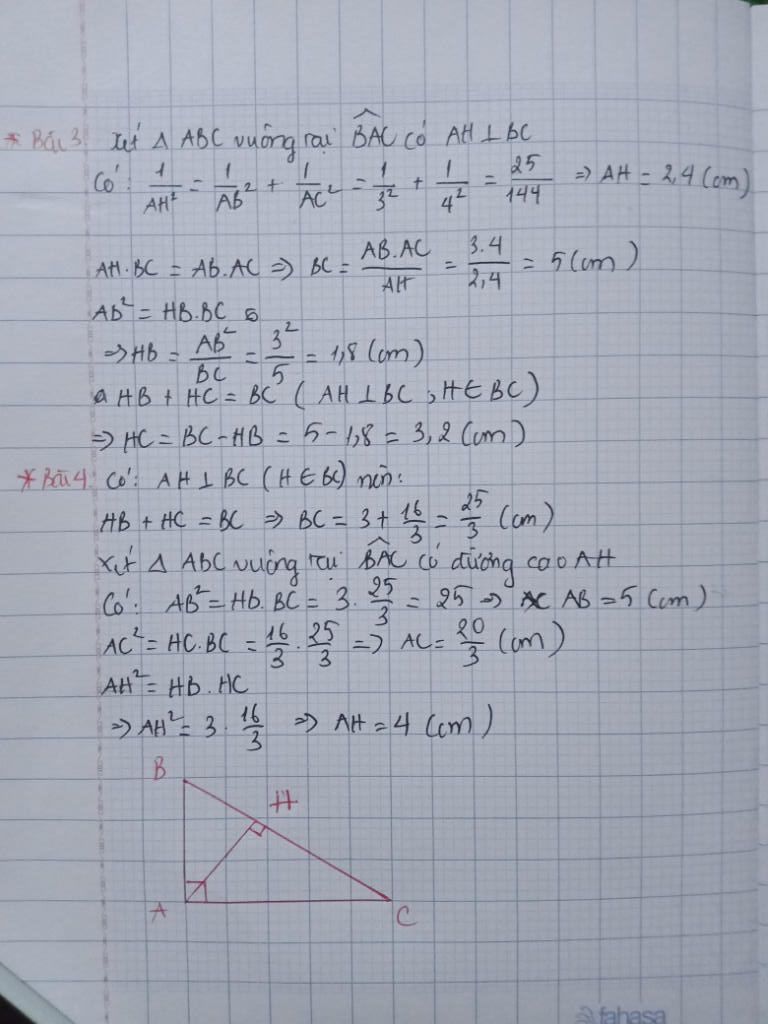 * Bài 3 Xét Δ ABC vuông tại \widehat{BAC} có AH ⊥ BC
Có: 1/AH² = 1/AB² + 1/AC² = 1/3² + 1/4² = 25/144 => AH = 2,4 (cm)
AH.BC = AB.AC => BC = AB.AC/AH = 3.4/2,4 = 5 (cm)
AB² = HB.BC
=> HB = AB²/BC = 3²/5 = 1,8 (cm)
HB + HC = BC (AH ⊥ BC, H ∈ BC)
=> HC = BC - HB = 5 - 1,8 = 3,2 (cm)
* Bài 4: Có: AH ⊥ BC (H ∈ BC) nên:
HB + HC = BC => BC = 3 + 16/3 = 25/3 (cm)
Xét Δ ABC vuông tại \widehat{BAC} có đường cao AH
Có: AB² = HB.BC = 3 . 25/3 = 25 => AB = 5 (cm)
AC² = HC.BC = 16/3 . 25/3 => AC = 20/3 (cm)
AH² = HB.HC
=> AH² = 3 . 16/3 => AH = 4 (cm)
B
H
A
C
fahasa